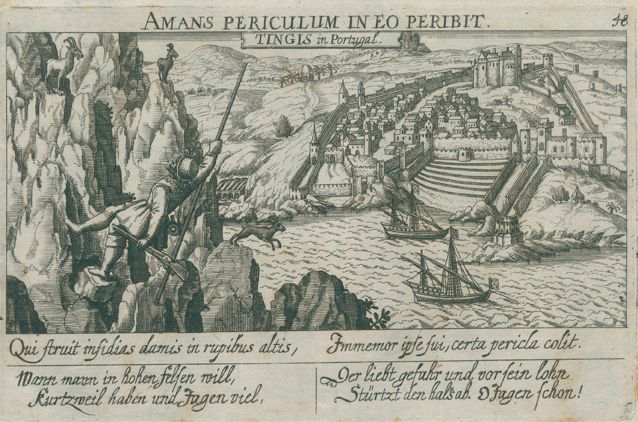 AMANS PERICULUM IN EO PERIBIT.
48
TINGIS in Portugal.
Qui struit insidias damis in rupibus altis,
Immemor ipse sui, certa pericla colit.
Wann mann in hohen felsen will,
Kurtzweil haben und Jagen viel,
Der liebt gefahr und vor sein lohn
Stürtzt den hals ab. O Jagen schon!